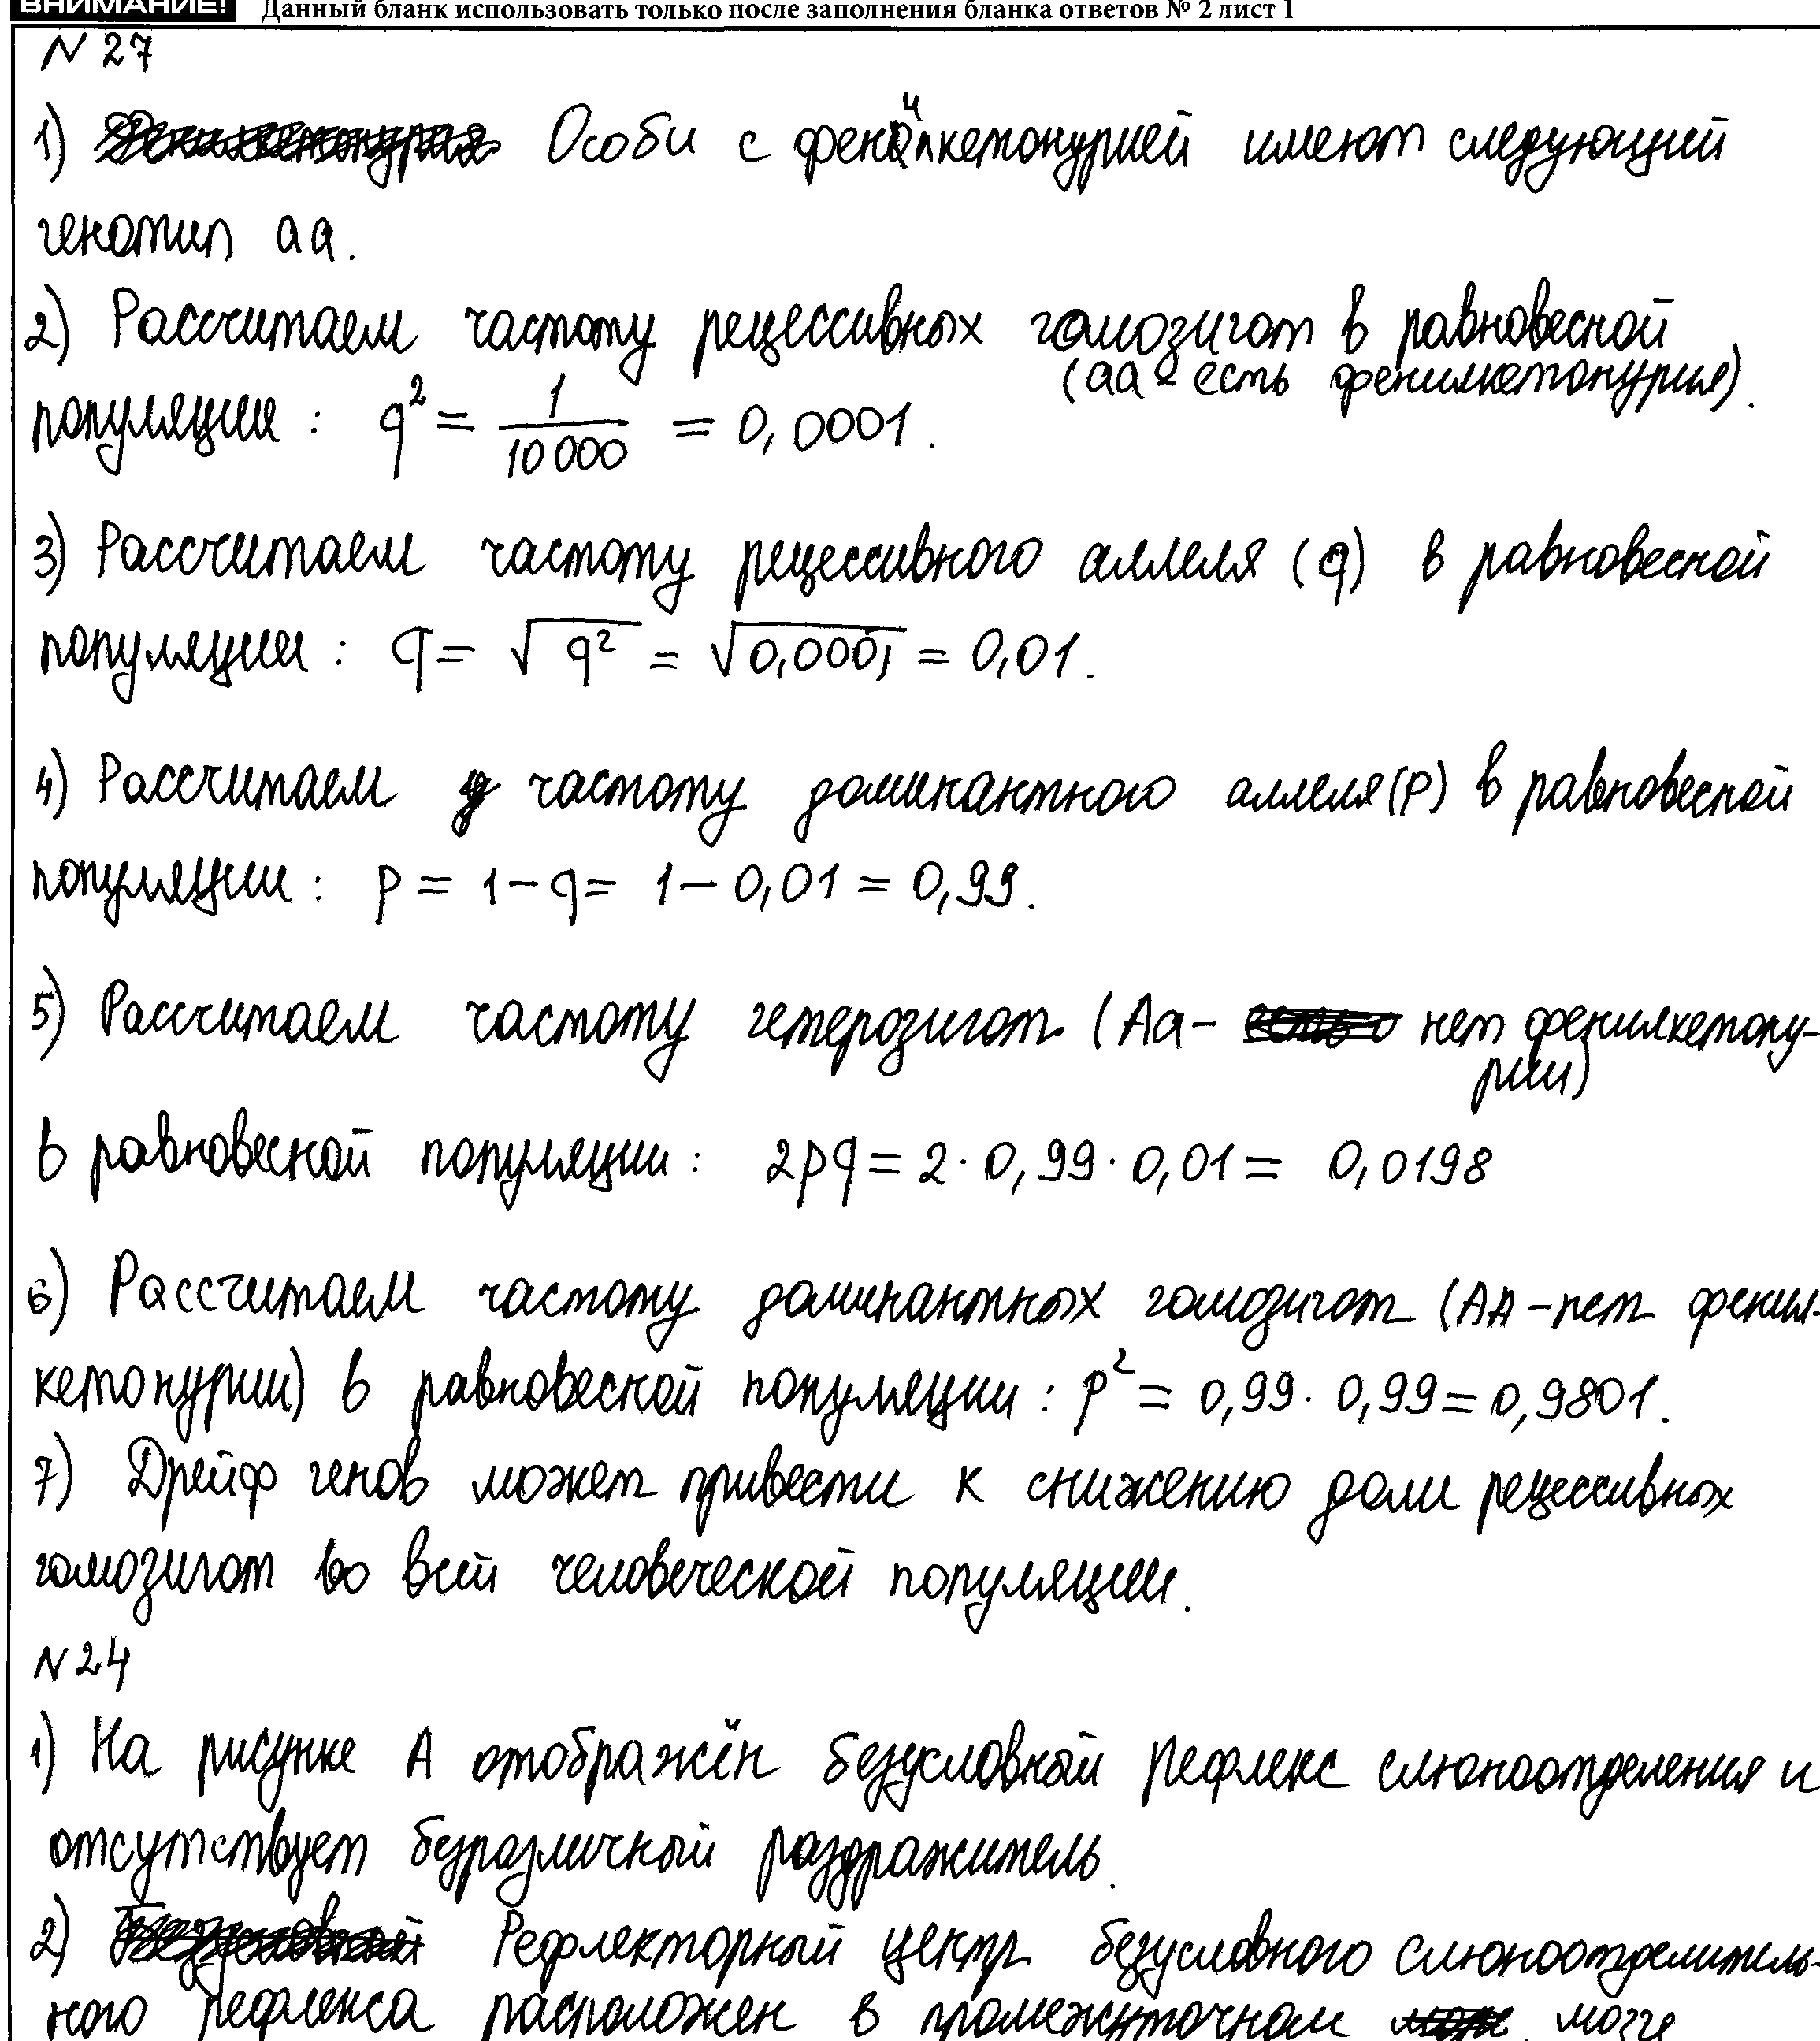 ВНИМАНИЕ! Данный бланк использовать только после заполнения бланка ответов № 2 лист 1
N 27
1) Особи с фенилкетонурией имеют следующий
генотип aa.
2) Рассчитаем частоту рецессивных гомозигот в равновесной
(aa - есть фенилкетонурия).
популяции : q² = 1/10 000 = 0,0001.
3) Рассчитаем частоту рецессивного аллеля (q) в равновесной
популяции : q = √q² = √0,0001 = 0,01.
4) Рассчитаем частоту доминантного аллеля (p) в равновесной
популяции : p = 1 - q = 1 - 0,01 = 0,99.
5) Рассчитаем частоту гетерозигот (Aa - нет фенилкетону-
рии)
в равновесной популяции : 2pq = 2 · 0,99 · 0,01 = 0,0198
6) Рассчитаем частоту доминантных гомозигот (AA - нет фенил-
кетонурии) в равновесной популяции : p² = 0,99 · 0,99 = 0,9801.
7) Дрейф генов может привести к снижению доли рецессивных
гомозигот во всей человеческой популяции.
N 24
1) На рисунке А отображён безусловный рефлекс слюноотделения и
отсутствует безразличный раздражитель.
2) Рефлекторный центр безусловного слюноотделитель-
ного рефлекса расположен в промежуточном мозге